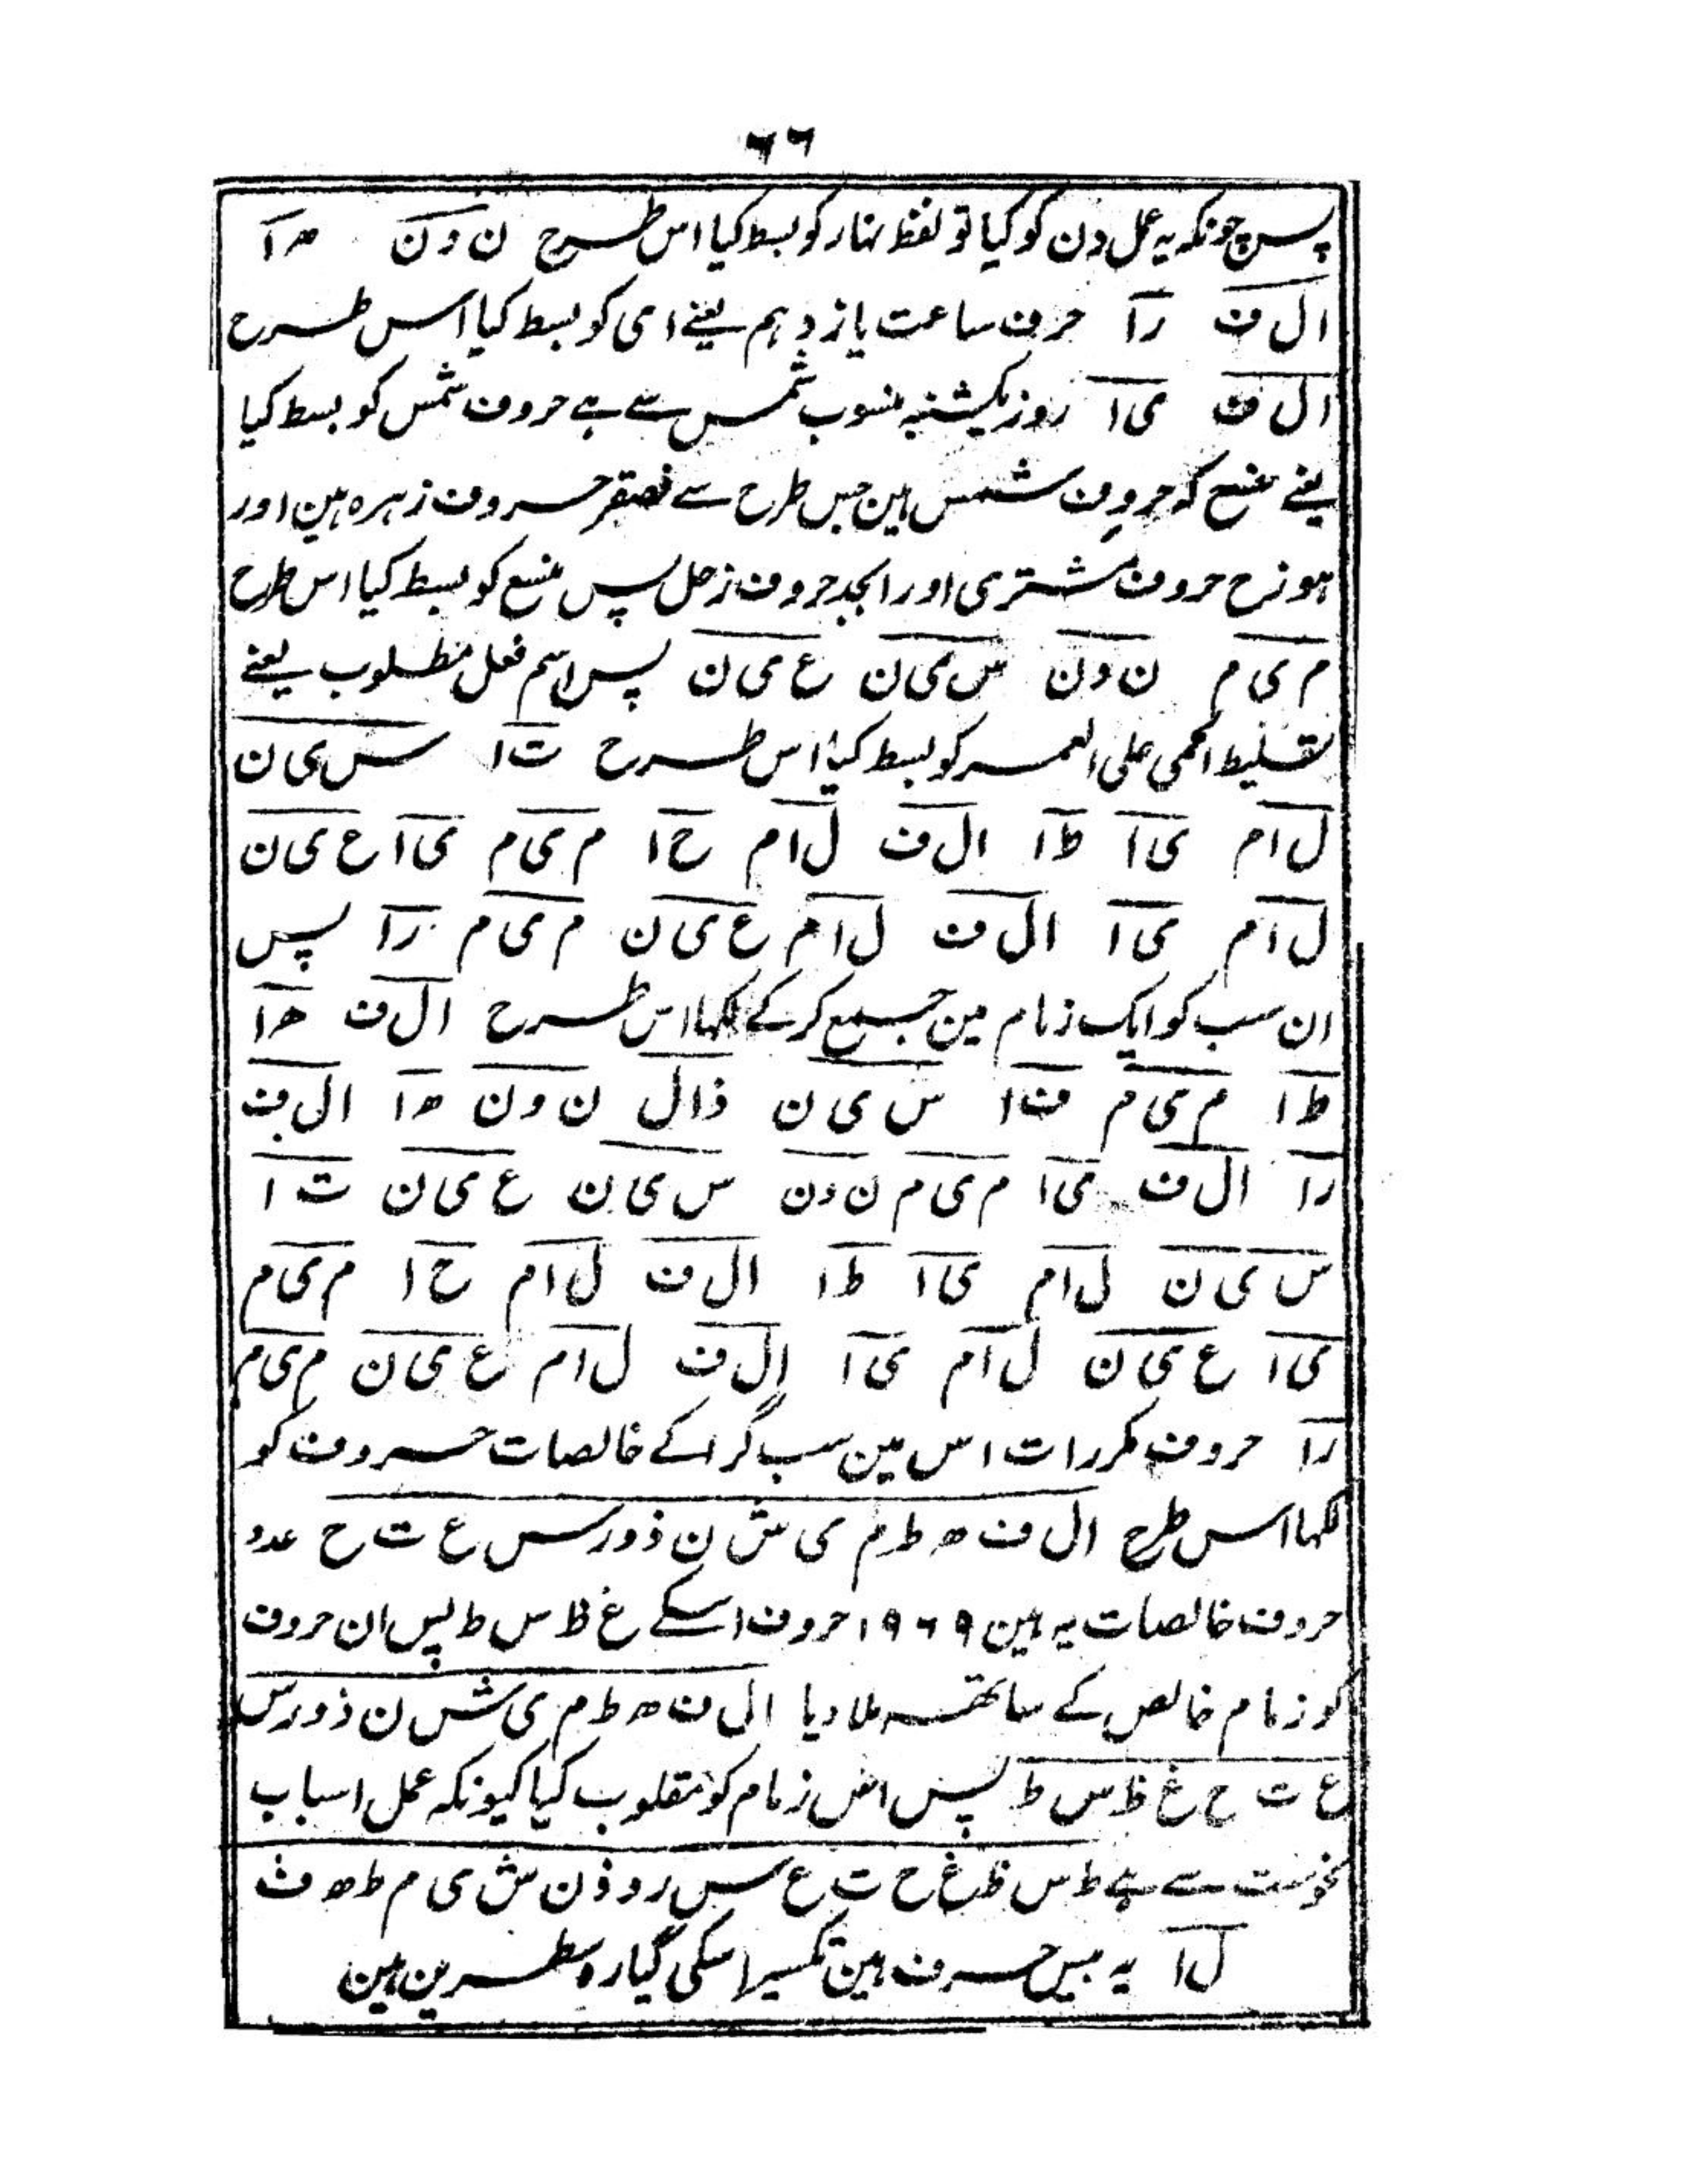 ٦٦
پس چونکہ یہ عمل دن کو کیا تو لفظ نہار کو بسط کیا اس طرح ن و ن ہ ا
ا ل ف ر ا حرف ساعت یازدہم یعنے ا ی کو بسط کیا اس طرح
ا ل ف ی ا روز یکشنبہ منسوب شمس سے ہے حروف شمس کو بسط کیا
یعنے منسع کہ حروف شمس ہین جس طرح سے فصقر حروف زہرہ ہین اور
ہوزح حروف مشتری اور ابجد حروف زحل پس منسع کو بسط کیا اس طرح
م ی م ن و ن س ی ن ع ی ن پس اسم فعل مطلوب یعنے
تسلیط الحمی علی العمر کو بسط کیا اس طرح ت ا س ی ن
ل ا م ی ا ط ا ا ل ف ل ا م ح ا م ی م ی ا ع ی ن
ل ا م ی ا ا ل ف ل ا م ع ی ن م ی م ر ا پس
ان سب کو ایک زمام مین جمع کر کے لکہا اس طرح ا ل ف ھ ا
ط ا م ی م ف ا س ی ن ذ ا ل ن و ن ہ ا ا ل ف
ر ا ا ل ف ی ا م ی م ن و ن س ی ن ع ی ن ت ا
س ی ن ل ا م ی ا ط ا ا ل ف ل ا م ح ا م ی م
ی ا ع ی ن ل ا م ی ا ا ل ف ل ا م ع ی ن م ی م
ر ا حروف مکررات اس مین سب گرا کے خالصات حروف کو
لکہا اس طرح ا ل ف ھ ط م ی ش ن ذ و ر س ع ت ح عدد
حروف خالصات یہ ہین ١٩٦٩ حروف اسکے غ ظ س ط پس ان حروف
کو زمام خالص کے ساتھہ ملا دیا ا ل ف ھ ط م ی ش ن ذ و ر س
ع ت ح غ ظ س ط پس اس زمام کو مقلوب کیا کیونکہ عمل اسباب
نحوست سے ہے ط س ظ غ ح ت ع س ر و ذ ن ش ی م ط ھ ف
ل ا یہ بیس حرف ہین تکسیر اسکی گیارہ سطرین ہین